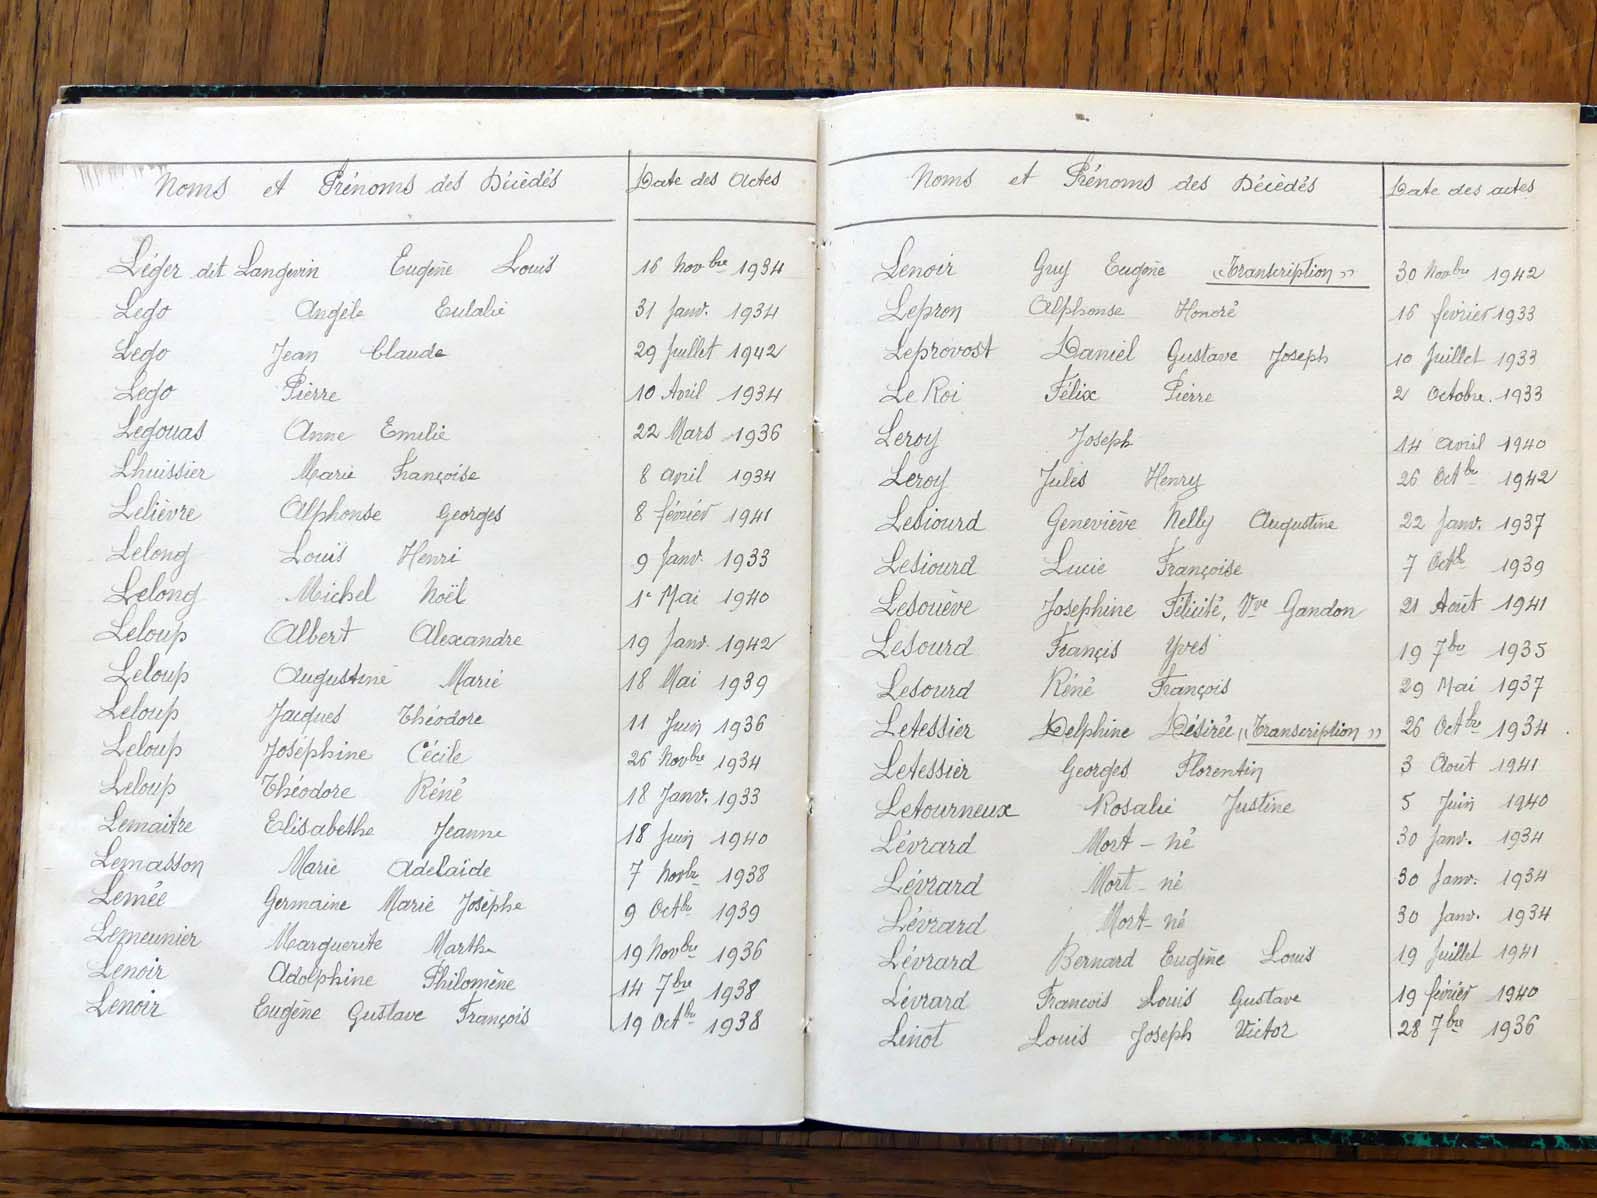 Noms et Prénoms des Décédés Date des Actes
Léger dit Langevin Eugène Louis 16 Novbre 1934
Lego Angèle Eulalie 31 Janv. 1934
Lego Jean Claude 29 Juillet 1942
Lego Pierre 10 Avril 1934
Legouas Anne Emilie 22 Mars 1936
Lhuissier Marie Françoise 8 avril 1934
Lelièvre Alphonse Georges 8 février 1941
Lelong Louis Henri 9 Janv. 1933
Lelong Michel Noël 1er Mai 1940
Leloup Albert Alexandre 19 Janv. 1942
Leloup Augustine Marie 18 Mai 1939
Leloup Jacques Théodore 11 Juin 1936
Leloup Joséphine Cécile 26 Novbre 1934
Leloup Théodore Réné 18 Janv. 1933
Lemaitre Elisabethe Jeanne 18 Juin 1940
Lemasson Marie Adelaide 7 Novbre 1938
Lemée Germaine Marie Josèphe 9 Octbre 1939
Lemeunier Marguerite Marthe 19 Novbre 1936
Lenoir Adolphine Philomène 14 7bre 1938
Lenoir Eugène Gustave François 19 Octbre 1938
Noms et Prénoms des Décédés Date des actes
Lenoir Guy Eugène "Transcription" 30 Novbre 1942
Lepron Alphonse Honoré 16 février 1933
Leprovost Daniel Gustave Joseph 10 Juillet 1933
Le Roi Félix Pierre 2 Octobre. 1933
Leroy Joseph 14 avril 1940
Leroy Jules Henry 26 Octbre 1942
Lesiourd Geneviève Nelly Augustine 22 Janv. 1937
Lesiourd Lucie Françoise 7 Octb 1939
Lesouève Josephine Félicité, Vve Gandon 21 Août 1941
Lesourd Françis Yves 19 7bre 1935
Lesourd Réné François 29 Mai 1937
Letessier Delphine Désirée "Transcription" 26 Octbre 1934
Letessier Georges Florentin 3 Août 1941
Letourneux Rosalie Justine 5 Juin 1940
Lévrard Mort-né 30 Janv. 1934
Lévrard Mort-né 30 Janv. 1934
Lévrard Mort-né 30 Janv. 1934
Lévrard Bernard Eugène Louis 19 Juillet 1941
Lévrard Francois Louis Gustave 19 février 1940
Linot Louis Joseph Victor 28 7bre 1936